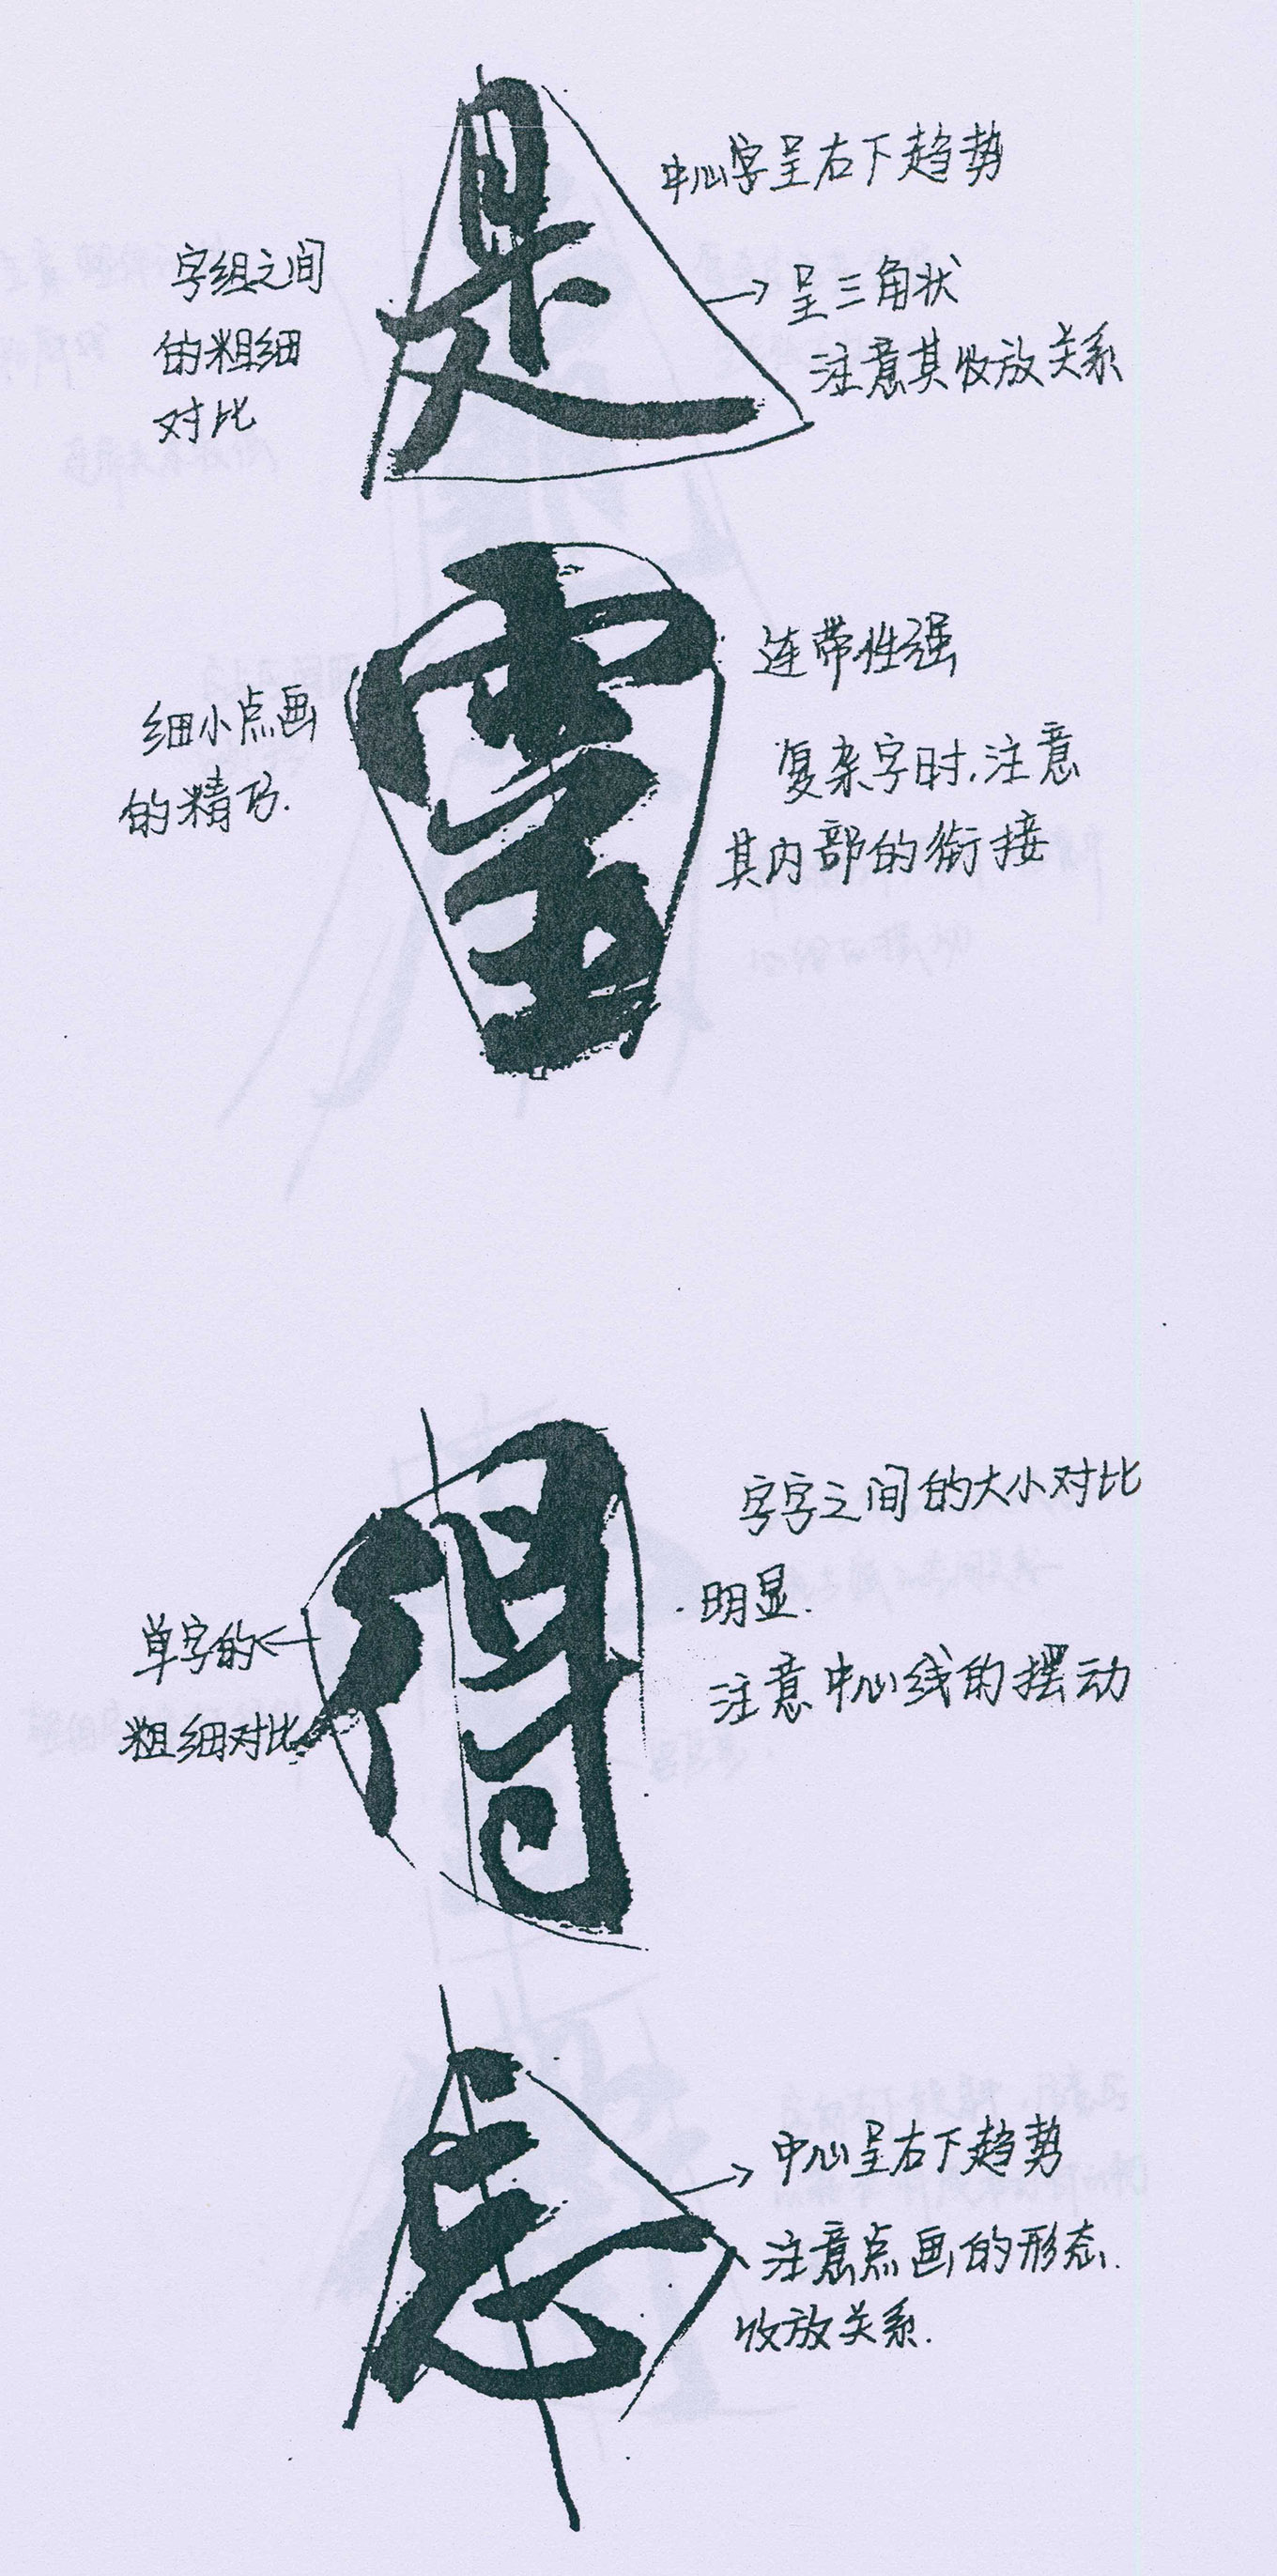 是
中心字呈右下趋势
呈三角状
注意其收放关系
字组之间
的粗细
对比
连带性强
复杂字时,注意
其内部的衔接
细小点画
的精巧.
得
字字之间的大小对比
明显.
注意中心线的摆动
单字的
粗细对比
中心呈右下趋势
注意点画的形态.
收放关系.